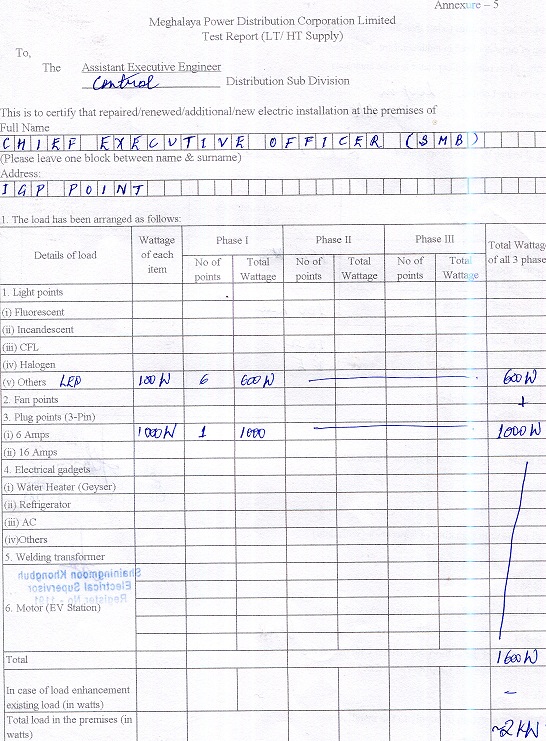 Annexure – 5
Meghalaya Power Distribution Corporation Limited
Test Report (LT/ HT Supply)
To,
The Assistant Executive Engineer
Control Distribution Sub Division
This is to certify that repaired/renewed/additional/new electric installation at the premises of
Full Name
CHIEF EXECUTIVE OFFICER (SMB)
(Please leave one block between name & surname)
Address:
IGP POINT
1. The load has been arranged as follows:
Details of load Wattage of each item Phase I Phase II Phase III Total Wattage of all 3 phase
No of points Total Wattage No of points Total Wattage No of points Total Wattage
1. Light points
(i) Fluorescent
(ii) Incandescent
(iii) CFL
(iv) Halogen
(v) Others LED 100W 6 600W 600W
2. Fan points +
3. Plug points (3-Pin)
(i) 6 Amps 1000W 1 1000 1000W
(ii) 16 Amps
4. Electrical gadgets
(i) Water Heater (Geyser)
(ii) Refrigerator
(iii) AC
(iv)Others
5. Welding transformer
Shainingmoon Khongbuh
Electrical Supervisor
Register No - 1191
6. Motor (EV Station)
Total 1600W
In case of load enhancement existing load (in watts) –
Total load in the premises (in watts) ~2KW